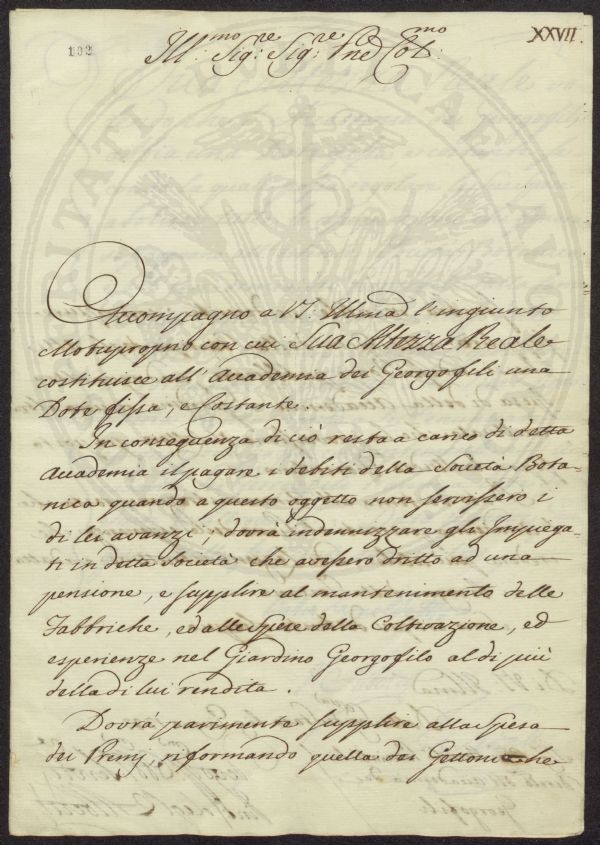 XXVII.
102
Ill:mo Sig:re Sig:re Pne Col:mo
Accompagno a VS. Illma l'ingiunto
Motuproprio con cui Sua Altezza Reale
costituisce all' Accademia dei Georgofili una
Dote fissa, e Costante.
In conseguenza di ciò resta a carico di detta
Accademia il pagare i debiti della Società Bota-
nica quando a questo oggetto non servissero i
di lei avanzi, dovrà indennizzare gli Impiega-
ti in detta Società che avessero dritto ad una
pensione, e supplire al mantenimento delle
Fabbriche, ed alle Spese della Coltivazione, ed
esperienze nel Giardino Georgofilo al di più
della di lui rendita.
Dovrà parimente supplire alla Spesa
dei Premj, riformando quella dei Gettoni che